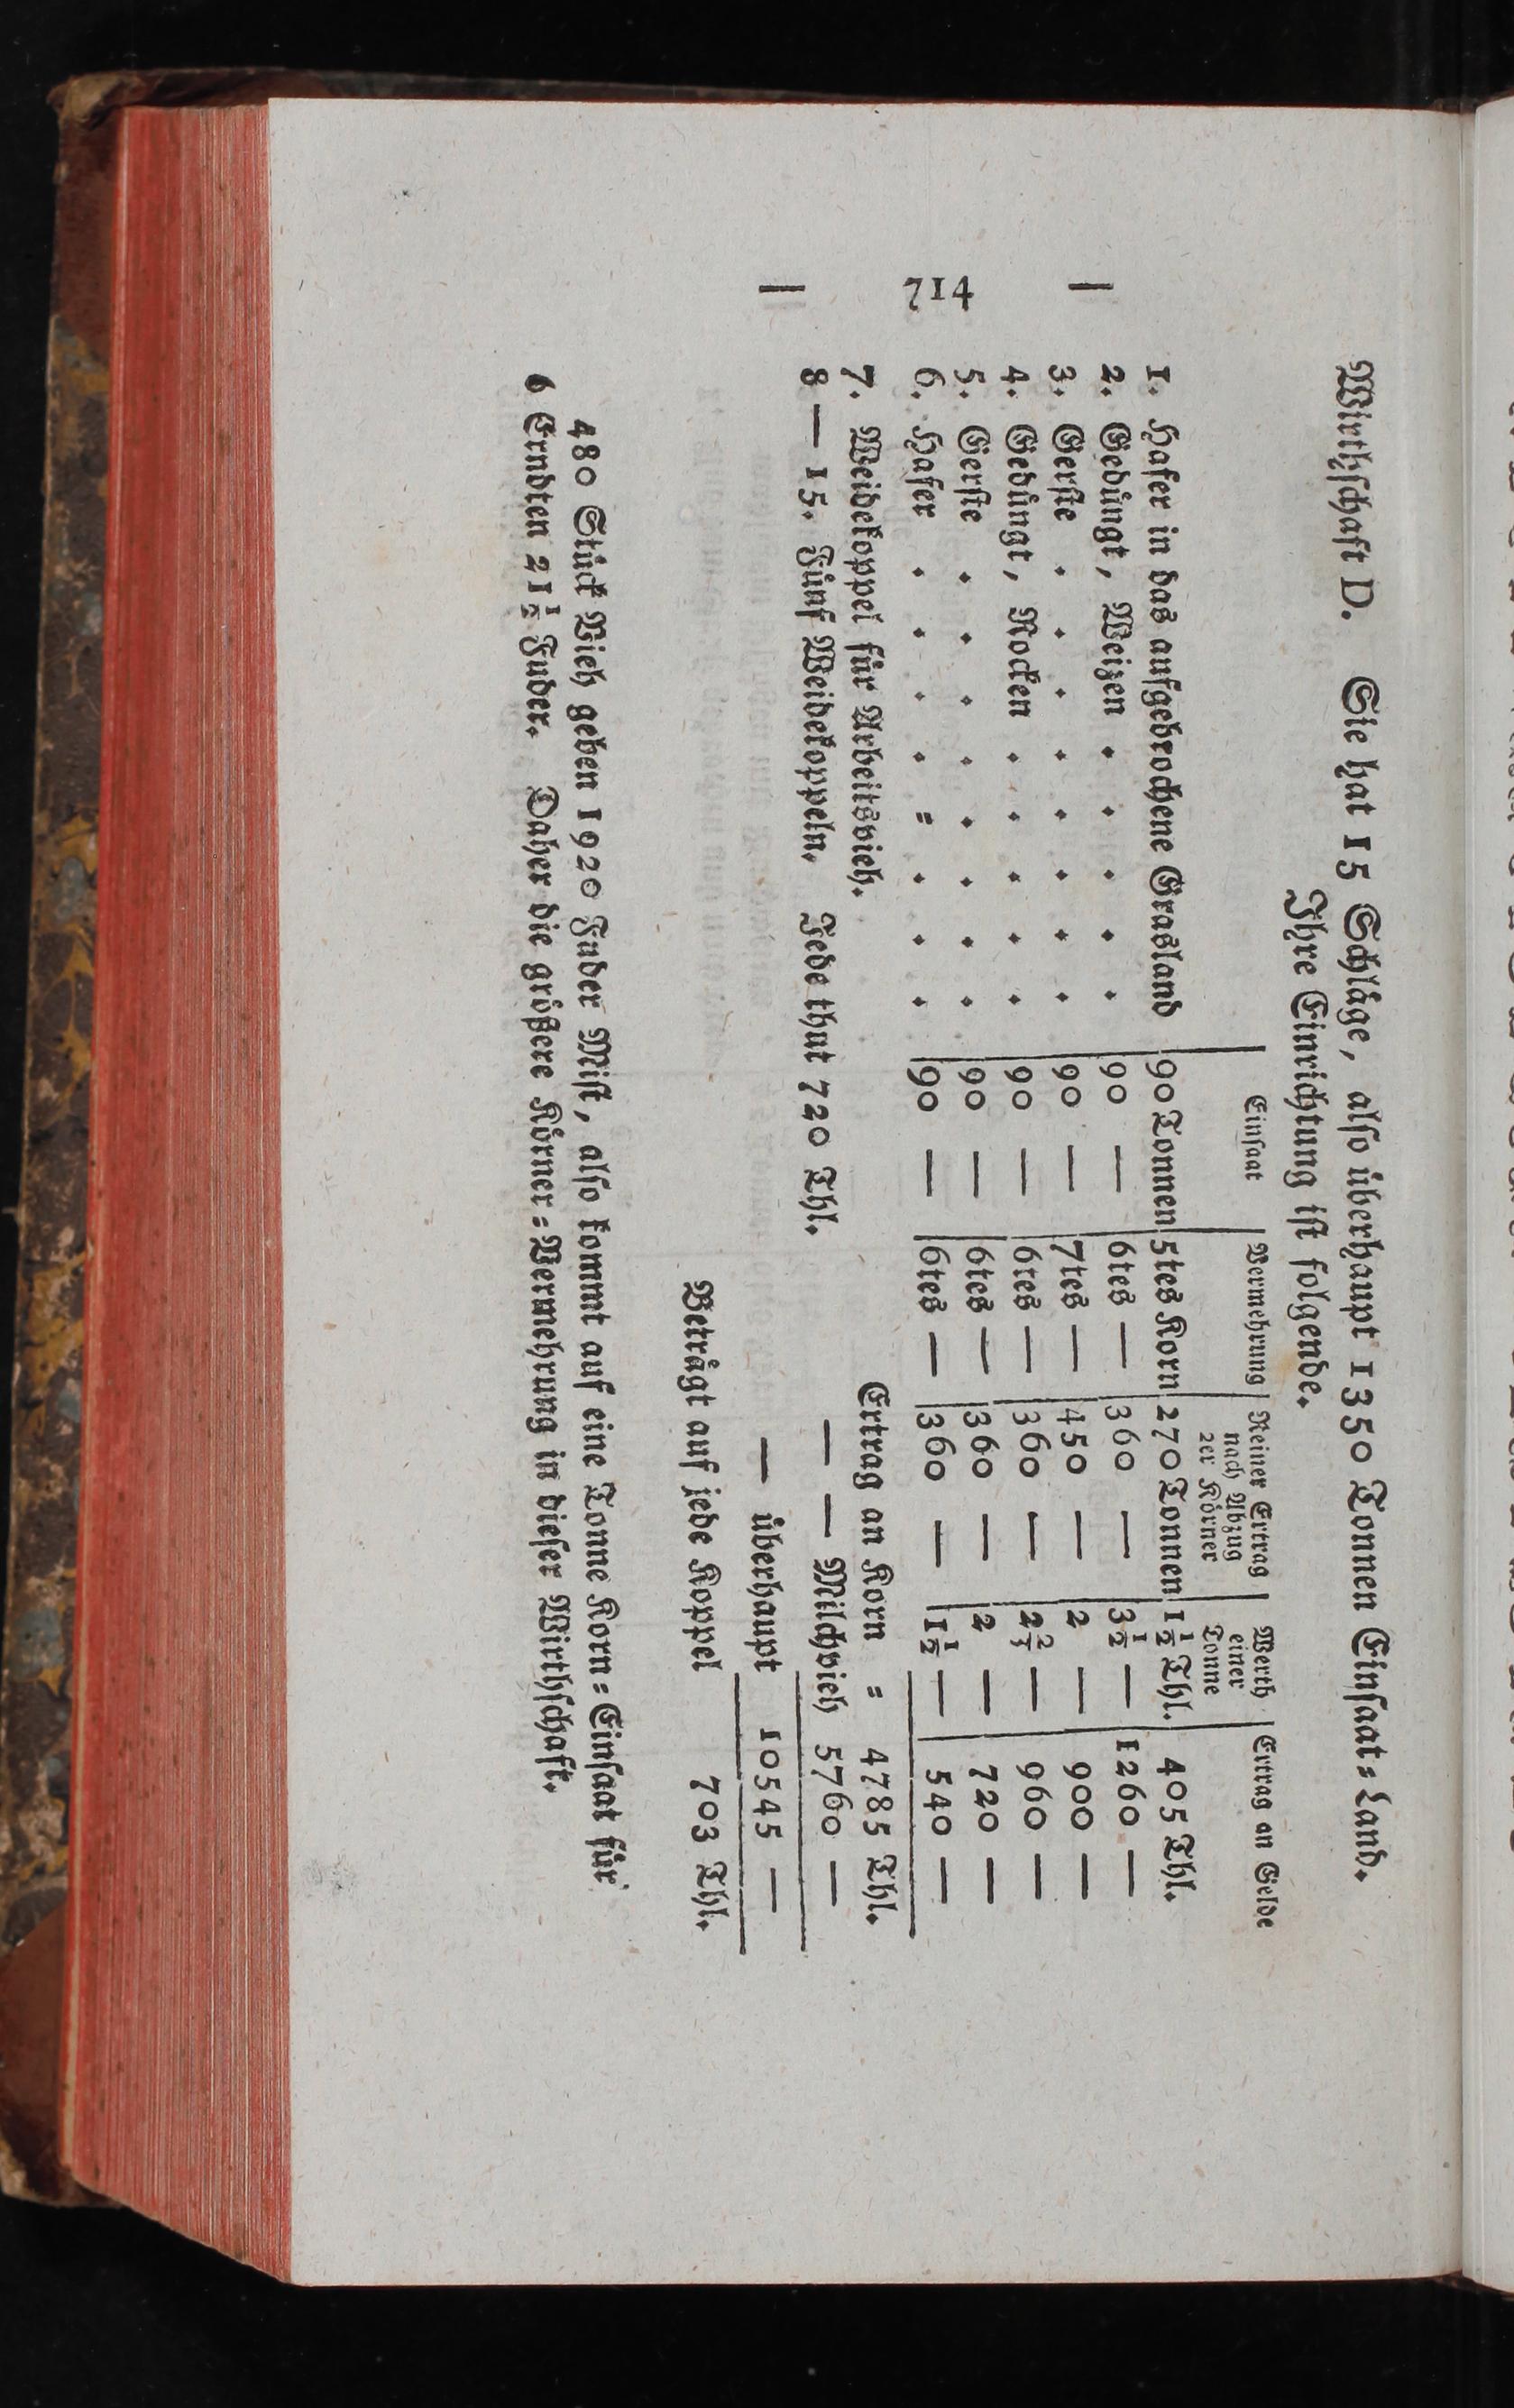 — 714 —
Wirthschaft D. Sie hat 15 Schläge, also überhaupt 1350 Tonnen Einsaat=Land.
Ihre Einrichtung ist folgende.
Einsaat | Vermehrung | Reiner Ertrag nach Abzug 2er Körner | Werth einer Tonne | Ertrag an Gelde
1. Hafer in das aufgebrochene Grasland | 90 Tonnen | 5tes Korn | 270 Tonnen | 1½ Thl. | 405 Thl.
2. Gedüngt, Weizen . . . . . | 90 — | 6tes — | 360 — | 3½ — | 1260 —
3. Gerste . . . . . . . . | 90 — | 7tes — | 450 — | 2 — | 900 —
4. Gedüngt, Rocken . . . . . | 90 — | 6tes — | 360 — | 2⅔ — | 960 —
5. Gerste . . . . . . . . | 90 — | 6tes — | 360 — | 2 — | 720 —
6. Hafer . . . . = . . . | 90 — | 6tes — | 360 — | 1½ — | 540 —
7. Weidekoppel für Arbeitsvieh. Ertrag an Korn = 4785 Thl.
8 — 15. Fünf Weidekoppeln. Jede thut 720 Thl. — — Milchvieh 5760 —
— überhaupt 10545 —
Beträgt auf jede Koppel 703 Thl.
480 Stück Vieh geben 1920 Fuder Mist, also kommt auf eine Tonne Korn=Einsaat für
6 Erndten 21½ Fuder. Daher die größere Körner=Vermehrung in dieser Wirthschaft.